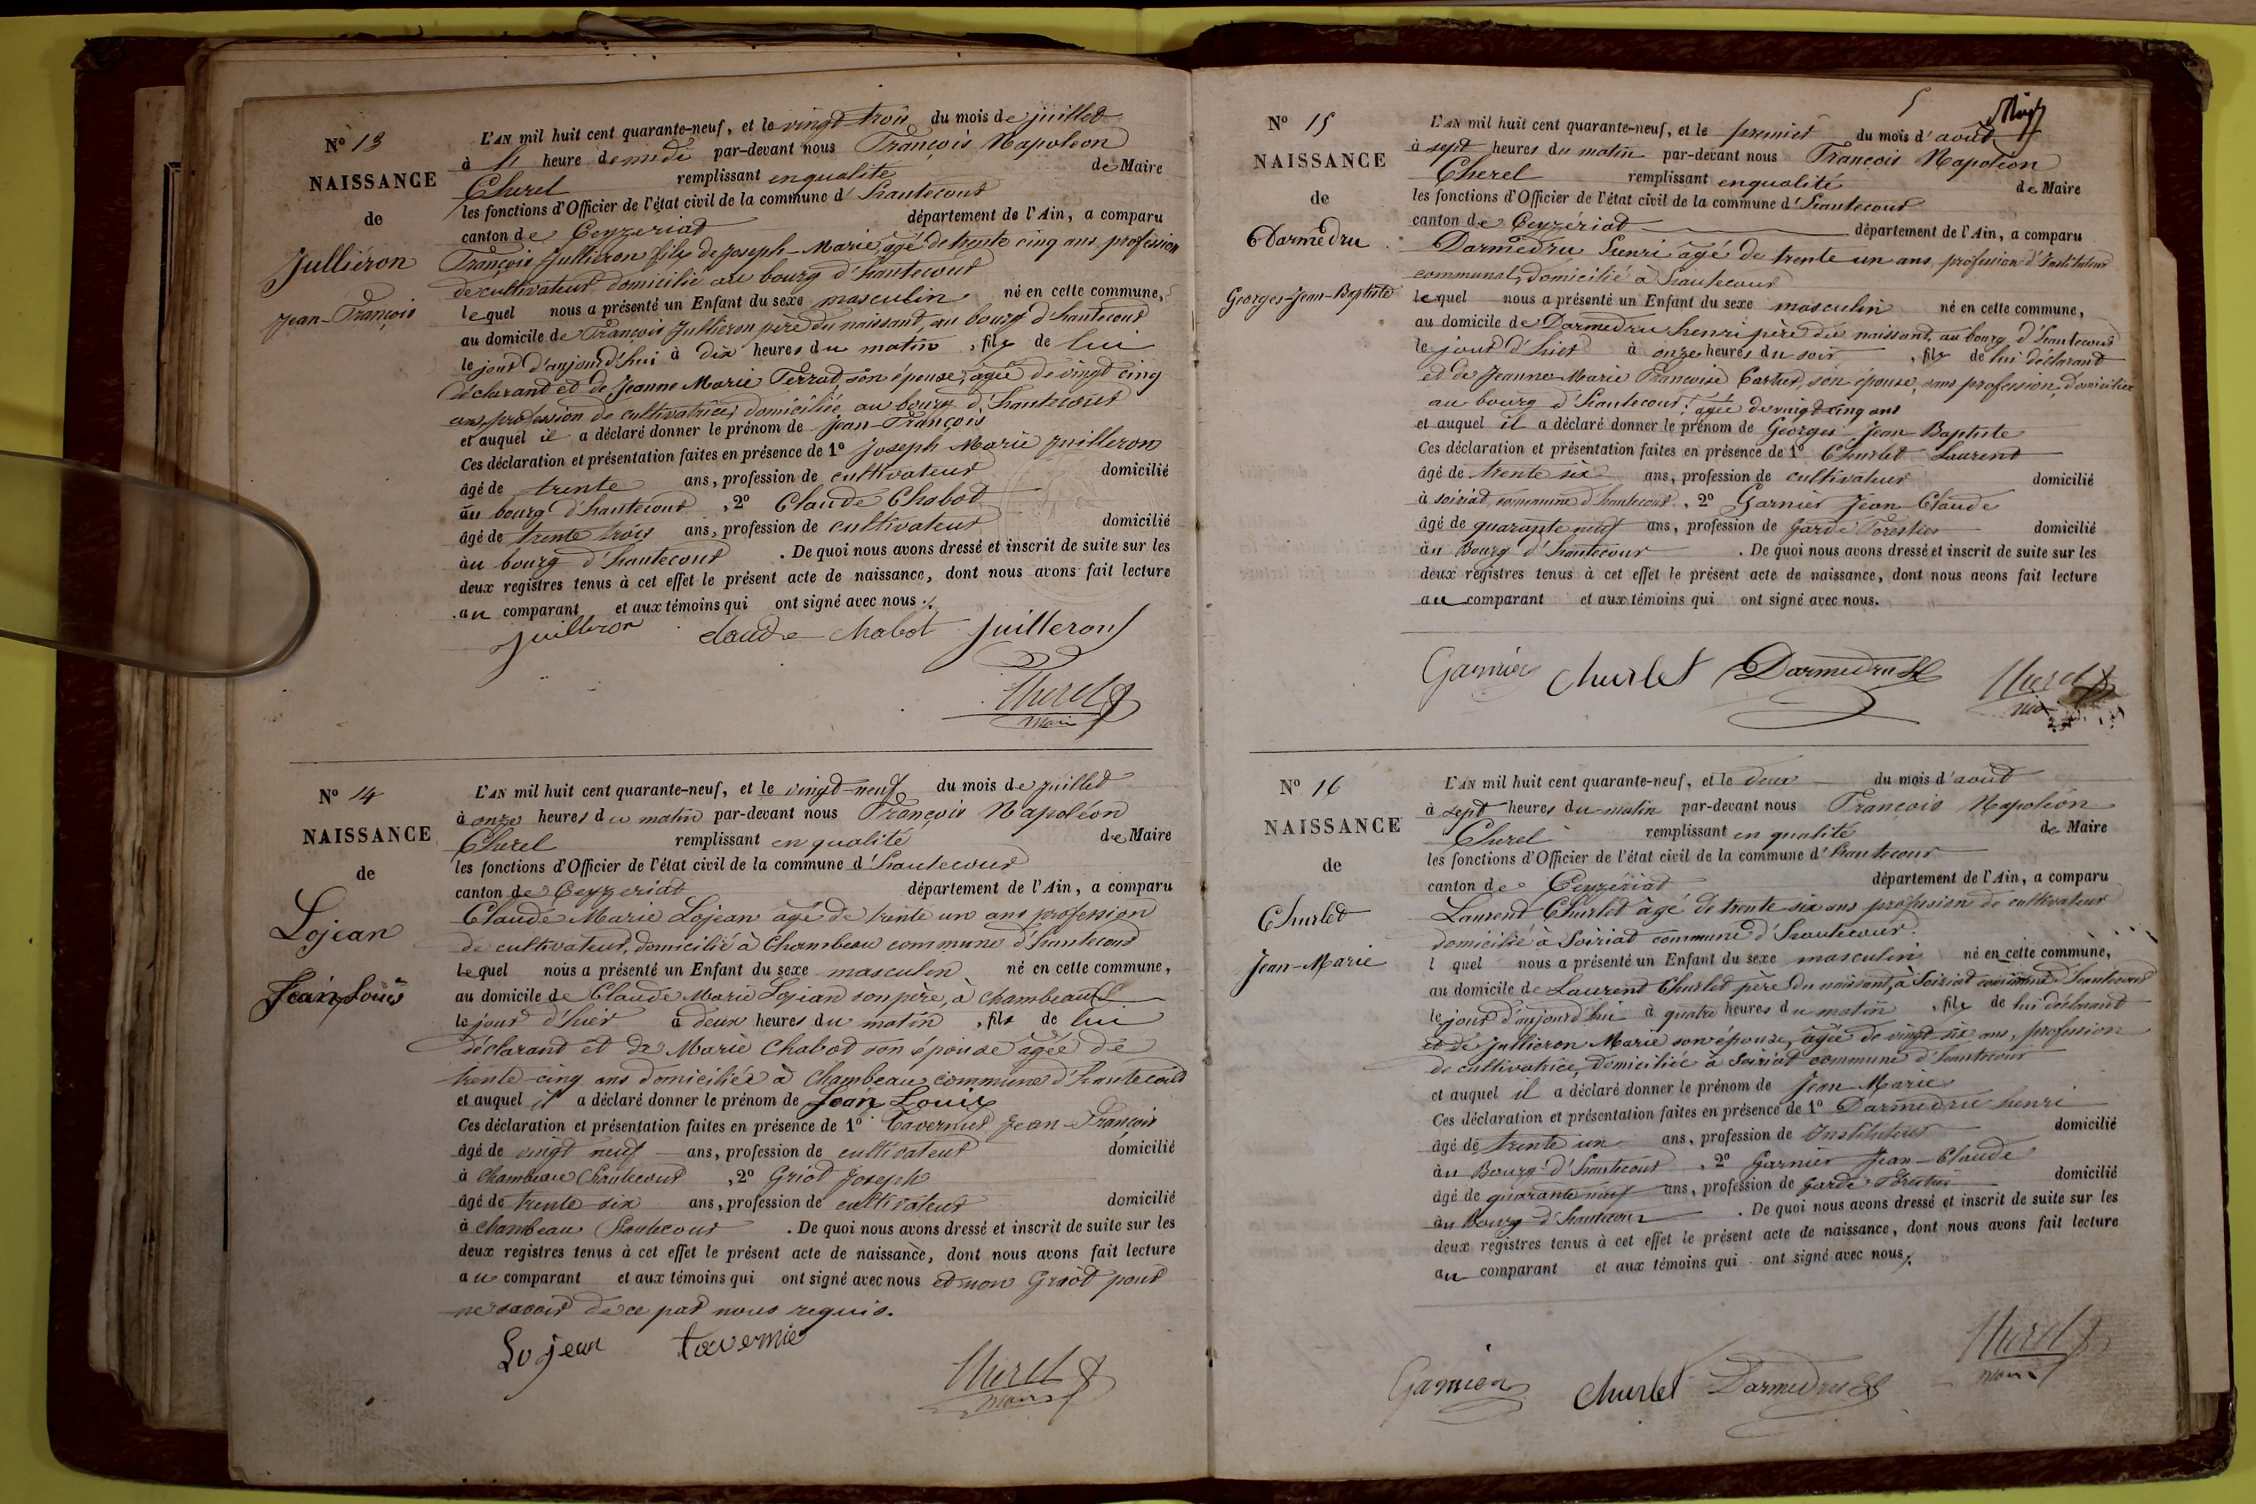 N° 13
NAISSANCE
de
Julliéron
Jean-François
L'AN mil huit cent quarante-neuf, et le vingt trois du mois de juillet
à heure de midi par-devant nous François Napoléon
Cherel remplissant en qualité de Maire
les fonctions d'Officier de l'état civil de la commune d'hautecour
canton de Ceyzeriat département de l'Ain, a comparu
François Jullieron fils de Joseph-Marie âgé de trente cinq ans, profession
de cultivateur domicilié au bourg d'hautecour
lequel nous a présenté un Enfant du sexe masculin né en cette commune,
au domicile de François Jullieron père du naissant, au bourg d'hautecour
le jour d'aujourd'hui à dix heures du matin, fils de lui
déclarant et de Jeanne Marie Ferrat, son épouse, âgée de vingt cinq
ans, profession de cultivatrice, domiciliée au bourg d'hautecour
et auquel il a déclaré donner le prénom de Jean-François
Ces déclaration et présentation faites en présence de 1° Joseph Marie Juilleron
âgé de trente ans, profession de cultivateur domicilié
au bourg d'hautecour, 2° Claude Chabot
âgé de trente trois ans, profession de cultivateur domicilié
au bourg d'hautecour. De quoi nous avons dressé et inscrit de suite sur les
deux registres tenus à cet effet le présent acte de naissance, dont nous avons fait lecture
au comparant et aux témoins qui ont signé avec nous.
Juilleron claude chabot Juilleron
Cherel
Maire
N° 14
NAISSANCE
de
Lojean
Jean Louis
L'AN mil huit cent quarante-neuf, et le vingt-neuf du mois de juillet
à onze heures du matin par-devant nous François Napoléon
Cherel remplissant en qualité de Maire
les fonctions d'Officier de l'état civil de la commune d'hautecour
canton de Ceyzeriat département de l'Ain, a comparu
Claude Marie Lojean âgé de trente un ans profession
de cultivateur, domicilié à Chambeau commune d'hautecour
lequel nous a présenté un Enfant du sexe masculin né en cette commune,
au domicile de Claude Marie Lojean son père, à chambeau
le jour d'hier à deux heures du matin, fils de lui
déclarant et de Marie Chabot son épouse âgée de
trente-cinq ans domiciliée à Chambeau commune d'hautecour
et auquel il a déclaré donner le prénom de Jean Louis
Ces déclaration et présentation faites en présence de 1° Tavernier Jean-François
âgé de vingt neuf ans, profession de cultivateur domicilié
à chambeau hautecour, 2° Griot Joseph
âgé de trente six ans, profession de cultivateur domicilié
à chambeau hautecour. De quoi nous avons dressé et inscrit de suite sur les
deux registres tenus à cet effet le présent acte de naissance, dont nous avons fait lecture
au comparant et aux témoins qui ont signé avec nous et non Griot pour
ne savoir de ce par nous requis.
Lojean tavernie
Cherel
Maire
5
N° 15
NAISSANCE
de
Darmedru
Georges-Jean-Baptiste
L'AN mil huit cent quarante-neuf, et le premier du mois d'août
à sept heures du matin par-devant nous François Napoléon
Cherel remplissant en qualité de Maire
les fonctions d'Officier de l'état civil de la commune d'hautecour
canton de Ceyzériat département de l'Ain, a comparu
Darmedru henri âgé de trente-un ans, profession d'Instituteur
communal, domicilié à hautecour
lequel nous a présenté un Enfant du sexe masculin né en cette commune,
au domicile de Darmedru henri père du naissant, au bourg d'hautecour
le jour d'hier à onze heures du soir, fils de lui déclarant
et de Jeanne-Marie Françoise son épouse, sans profession, domiciliée
au bourg d'hautecour, âgée de vingt-cinq ans
et auquel il a déclaré donner le prénom de Georges Jean-Baptiste
Ces déclaration et présentation faites en présence de 1° Churlet Laurent
âgé de trente six ans, profession de cultivateur domicilié
à soiriat commune d'hautecour, 2° Garnier Jean-Claude
âgé de quarante neuf ans, profession de Garde Forestier domicilié
au Bourg d'hautecour. De quoi nous avons dressé et inscrit de suite sur les
deux registres tenus à cet effet le présent acte de naissance, dont nous avons fait lecture
au comparant et aux témoins qui ont signé avec nous.
Garnier Churlet Darmedru
Cherel
N° 16
NAISSANCE
de
Churlet
Jean-Marie
L'AN mil huit cent quarante-neuf, et le deux du mois d'août
à sept heures du matin par-devant nous François Napoléon
Cherel remplissant en qualité de Maire
les fonctions d'Officier de l'état civil de la commune d'hautecour
canton de Ceyzériat département de l'Ain, a comparu
Laurent Churlet âgé de trente-six ans profession de cultivateur
domicilié à Soiriat commune d'hautecour.
l quel nous a présenté un Enfant du sexe masculin né en cette commune,
au domicile de Laurent Churlet père du naissant, à Soiriat commune d'hautecour
le jour d'aujourd'hui à quatre heures du matin, fils de lui déclarant
et de Jullieron Marie son épouse, âgée de vingt-six ans, profession
de cultivatrice, domiciliée à Soiriat commune d'hautecour
et auquel il a déclaré donner le prénom de Jean Marie
Ces déclaration et présentation faites en présence de 1° Darmedru henri
âgé de trente un ans, profession de Instituteur domicilié
au Bourg d'hautecour, 2° Garnier Jean-Claude
âgé de quarante neuf ans, profession de Garde Forestier domicilié
au Bourg d'hautecour. De quoi nous avons dressé et inscrit de suite sur les
deux registres tenus à cet effet le présent acte de naissance, dont nous avons fait lecture
au comparant et aux témoins qui ont signé avec nous.
Cherel
Maire
Garnier Churlet Darmedru